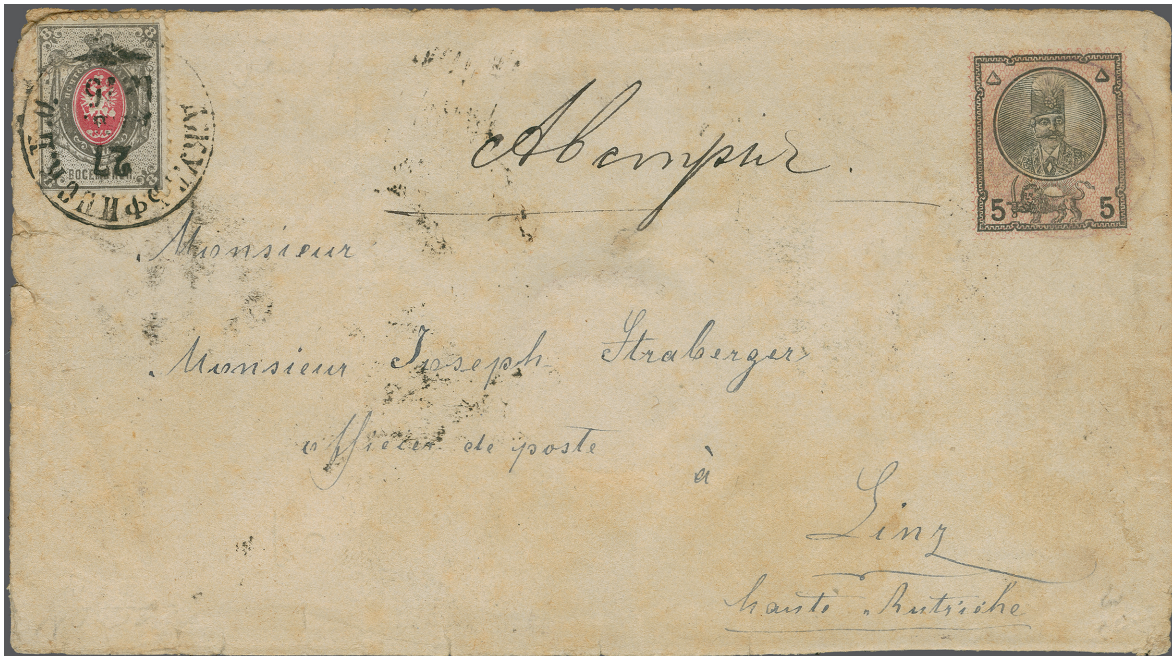 Австрія.
8 8
27
ВОСЕМЬ КОП.
5 5
Monsieur
Monsieur Joseph Straberger
officier de poste
à
Linz
haute Autriche